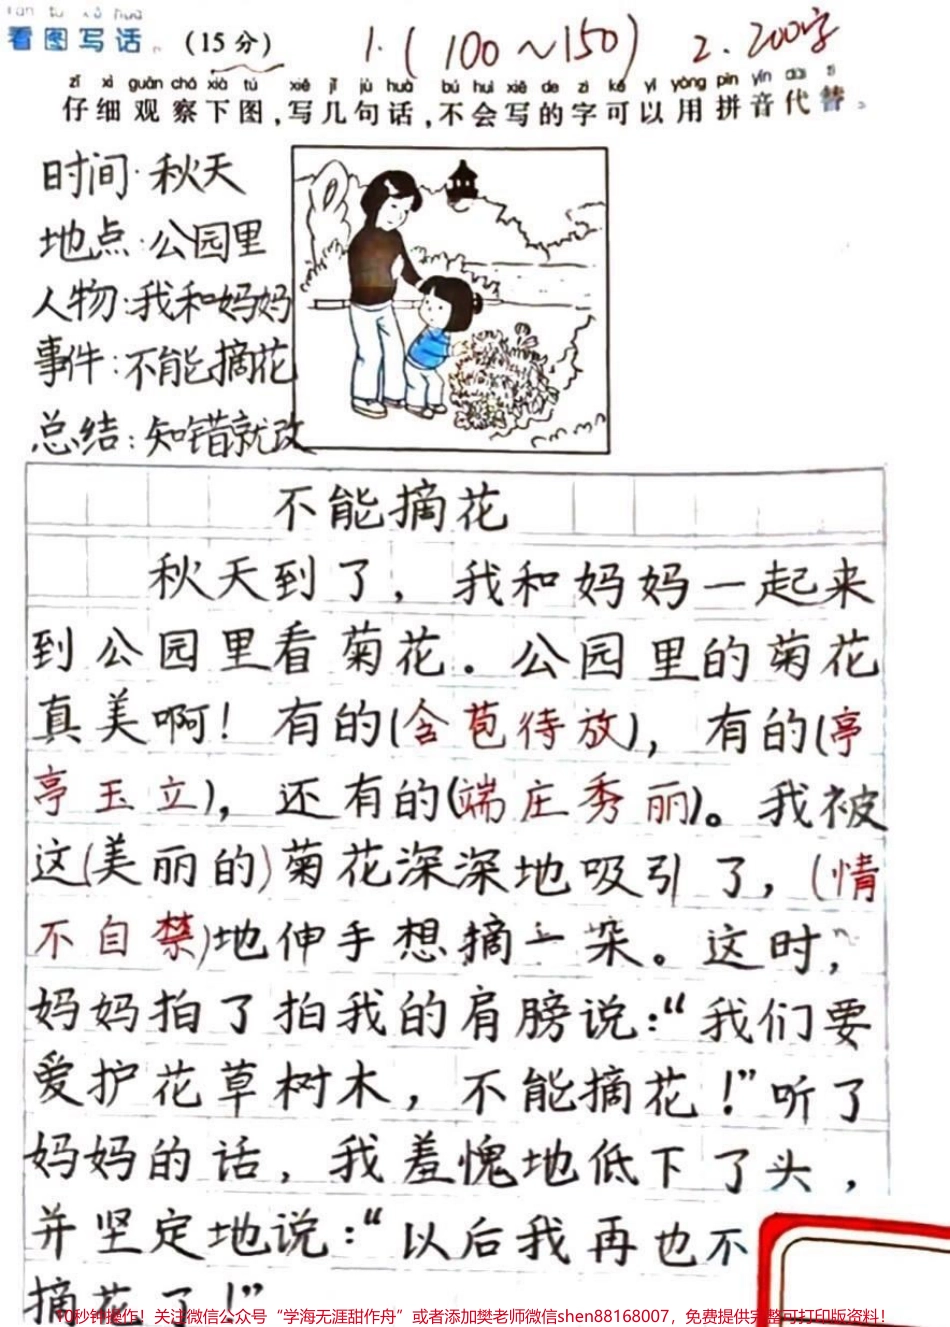 看图写话。(15分) 1.(100～150) 2.200字
zǐ xì guān chá xià tú xiě jǐ jù huà bú huì xiě de zì kě yǐ yòng pīn yīn dài tì
仔细观察下图,写几句话,不会写的字可以用拼音代替。
时间:秋天
地点:公园里
人物:我和妈妈
事件:不能摘花
总结:知错就改
不能摘花
秋天到了，我和妈妈一起来
到公园里看菊花。公园里的菊花
真美啊！有的(含苞待放)，有的(亭
亭玉立)，还有的(端庄秀丽)。我被
这(美丽的)菊花深深地吸引了，(情
不自禁)地伸手想摘一朵。这时，
妈妈拍了拍我的肩膀说：“我们要
爱护花草树木，不能摘花！”听了
妈妈的话，我羞愧地低下了头，
并坚定地说：“以后我再也不
摘花了！”
10秒钟操作！关注微信公众号“学海无涯甜作舟”或者添加樊老师微信shen88168007，免费提供完整可打印版资料！